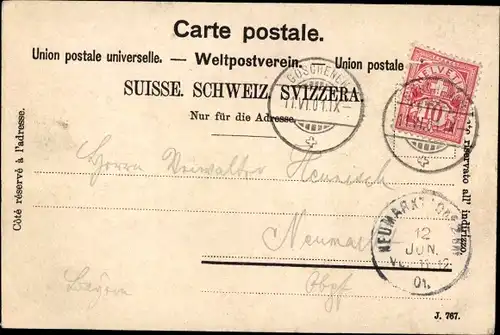 Carte postale.
Union postale universelle. — Weltpostverein. — Union postale
SUISSE. SCHWEIZ. SVIZZERA.
Nur für die Adresse
Côté réservé à l'adresse.
riservato all' indirizzo
GÖSCHENEN
11.VI.01.IX-
HELVETIA
10
Herrn Verwalter
Neumarkt
Bayern
Obpf.
NEUMARKT
12
JUN.
01.
J. 767.